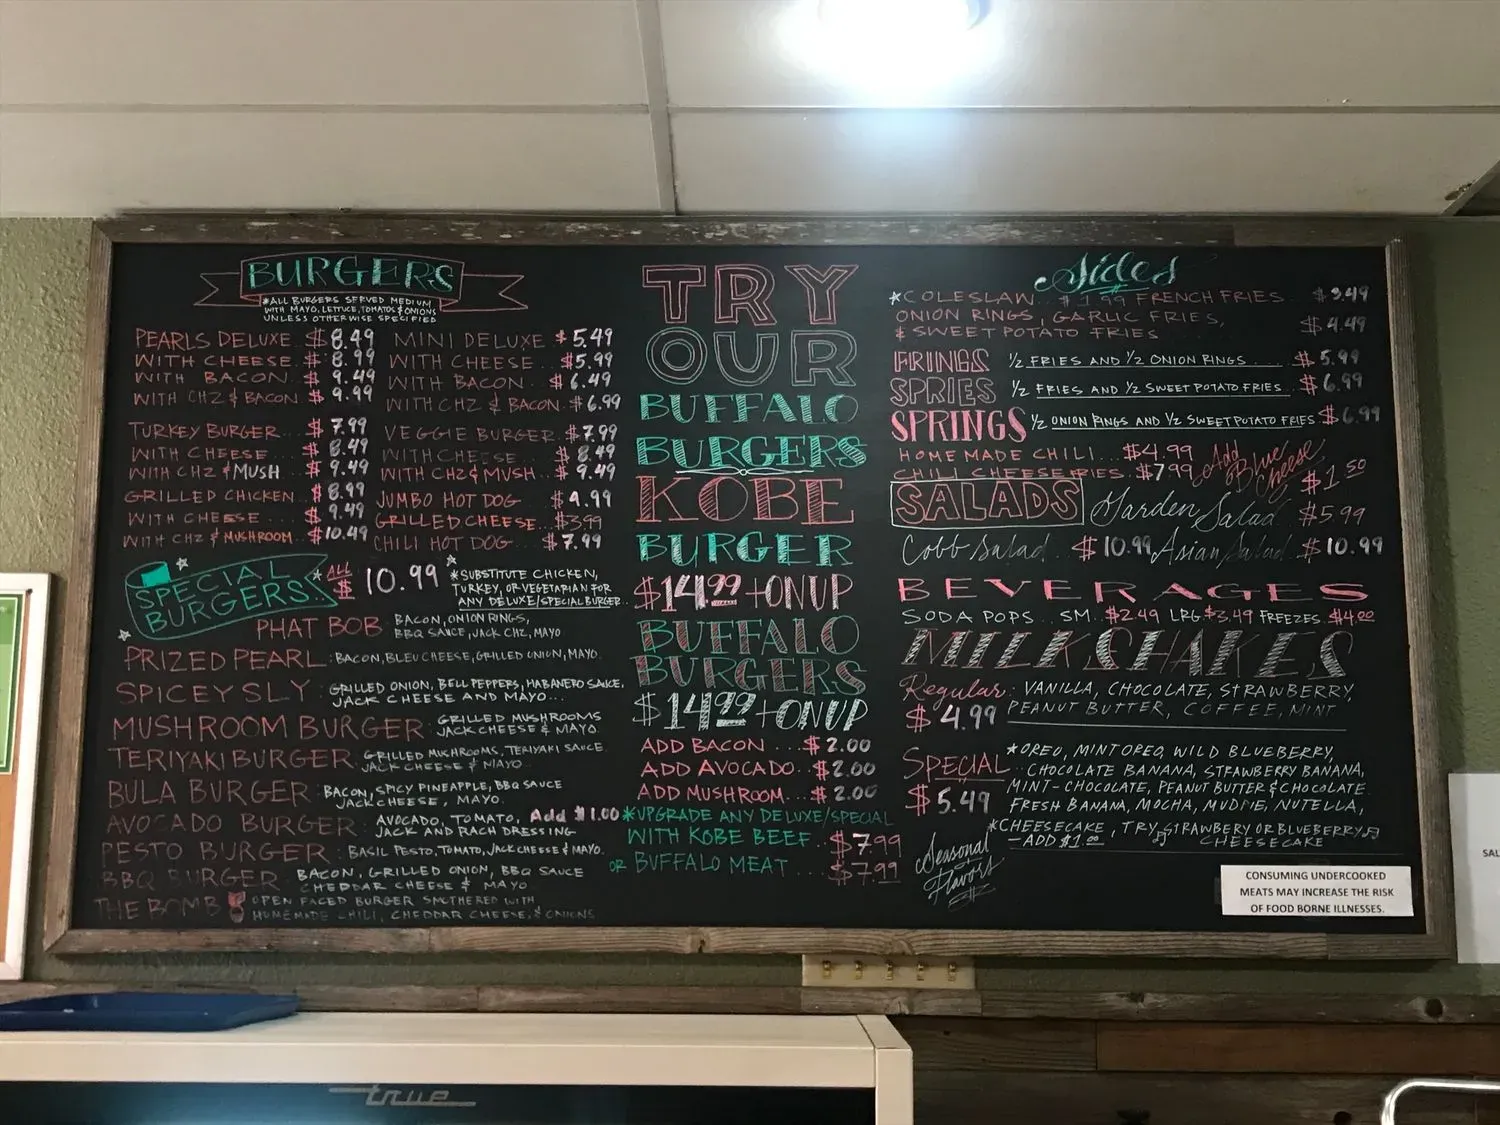 BURGERS
*ALL BURGERS SERVED MEDIUM
WITH MAYO, LETTUCE, TOMATOS & ONIONS
UNLESS OTHERWISE SPECIFIED
PEARLS DELUXE $8.49
WITH CHEESE $8.99
WITH BACON $9.49
WITH CHZ & BACON $9.99
TURKEY BURGER $7.99
WITH CHEESE $8.49
WITH CHZ & MUSH $9.49
GRILLED CHICKEN $8.99
WITH CHEESE $9.49
WITH CHZ & MUSHROOM $10.49
MINI DELUXE $5.49
WITH CHEESE $5.99
WITH BACON $6.49
WITH CHZ & BACON $6.99
VEGGIE BURGER $7.99
WITH CHEESE $8.49
WITH CHZ & MUSH $9.49
JUMBO HOT DOG $4.99
GRILLED CHEESE $3.99
CHILI HOT DOG $7.99
SPECIAL BURGERS!
ALL $10.99
*SUBSTITUTE CHICKEN,
TURKEY, OR VEGETARIAN FOR
ANY DELUXE/SPECIAL BURGER
PHAT BOB BACON, ONION RINGS,
BBQ SAUCE, JACK CHZ, MAYO
PRIZED PEARL: BACON, BLEU CHEESE, GRILLED ONION, MAYO.
SPICEY SLY: GRILLED ONION, BELL PEPPERS, HABANERO SAUCE,
JACK CHEESE AND MAYO...
MUSHROOM BURGER: GRILLED MUSHROOMS
JACK CHEESE & MAYO.
TERIYAKI BURGER: GRILLED MUSHROOMS, TERIYAKI SAUCE
JACK CHEESE & MAYO
BULA BURGER: BACON, SPICY PINEAPPLE, BBQ SAUCE
JACK CHEESE, MAYO.
AVOCADO BURGER: AVOCADO, TOMATO, Add $1.00
JACK AND RACH DRESSING
PESTO BURGER: BASIL PESTO, TOMATO, JACK CHEESE & MAYO.
BBQ BURGER: BACON, GRILLED ONION, BBQ SAUCE
CHEDDAR CHEESE & MAYO
THE BOMB OPEN FACED BURGER SMOTHERED WITH
HOMEMADE CHILI, CHEDDAR CHEESE, & ONIONS
TRY
OUR
BUFFALO
BURGERS
KOBE
BURGER
$14.99 + ON UP
BUFFALO
BURGERS
$14.99 + ON UP
ADD BACON ... $2.00
ADD AVOCADO.. $2.00
ADD MUSHROOM.. $2.00
*UPGRADE ANY DELUXE/SPECIAL
WITH KOBE BEEF.. $7.99
OR BUFFALO MEAT ... $7.99
Sides
*COLESLAW... $1.99 FRENCH FRIES ... $3.49
ONION RINGS, GARLIC FRIES,
& SWEET POTATO FRIES $4.49
FRINGS ½ FRIES AND ½ ONION RINGS .... $5.99
SPRIES ½ FRIES AND ½ SWEET POTATO FRIES .. $6.99
SPRINGS ½ ONION RINGS AND ½ SWEET POTATO FRIES $6.99
HOME MADE CHILI .... $4.99
CHILI CHEESE FRIES .. $7.99
Add Blue Cheese $1.50
SALADS Garden Salad $5.99
Cobb Salad $10.99 Asian Salad $10.99
BEVERAGES
SODA POPS .. SM. $2.49 LRG $3.49 FREEZES $4.00
MILKSHAKES
Regular: VANILLA, CHOCOLATE, STRAWBERRY,
$4.99 PEANUT BUTTER, COFFEE, MINT
SPECIAL $5.49
*OREO, MINT OREO, WILD BLUEBERRY,
CHOCOLATE BANANA, STRAWBERRY BANANA,
MINT-CHOCOLATE, PEANUT BUTTER & CHOCOLATE
FRESH BANANA, MOCHA, MUDPIE, NUTELLA,
*CHEESECAKE, TRY STRAWBERY OR BLUEBERRY
-ADD $1.00 CHEESECAKE
Seasonal
Flavors
CONSUMING UNDERCOOKED
MEATS MAY INCREASE THE RISK
OF FOOD BORNE ILLNESSES.
true